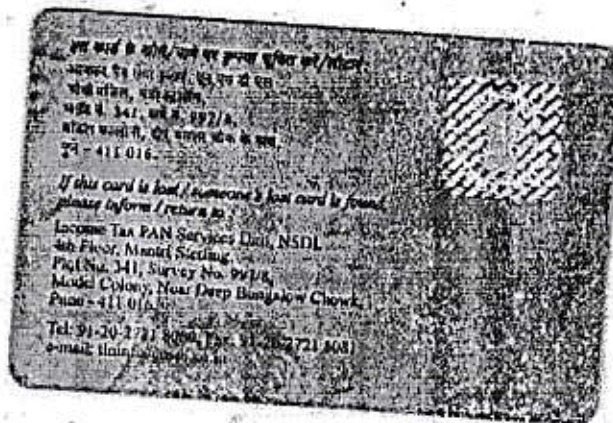 इस कार्ड के खोने/पाने पर कृपया सूचित करें/लौटाएं
आयकर पैन सेवा इकाई, एन एस डी एल
चौथी मंजिल, मंत्री स्टर्लिंग,
प्लॉट नं. 341, सर्वे नं. 997/8,
मॉडल कालोनी, दीप बंगला चौक के पास,
पुणे - 411 016.
If this card is lost / someone's lost card is found,
please inform / return to :
Income Tax PAN Services Unit, NSDL
4th Floor, Mantri Sterling,
Plot No. 341, Survey No. 997/8,
Model Colony, Near Deep Bungalow Chowk,
Pune - 411 016.
Tel: 91-20-2721 8080, Fax: 91-20-2721 8081
e-mail: